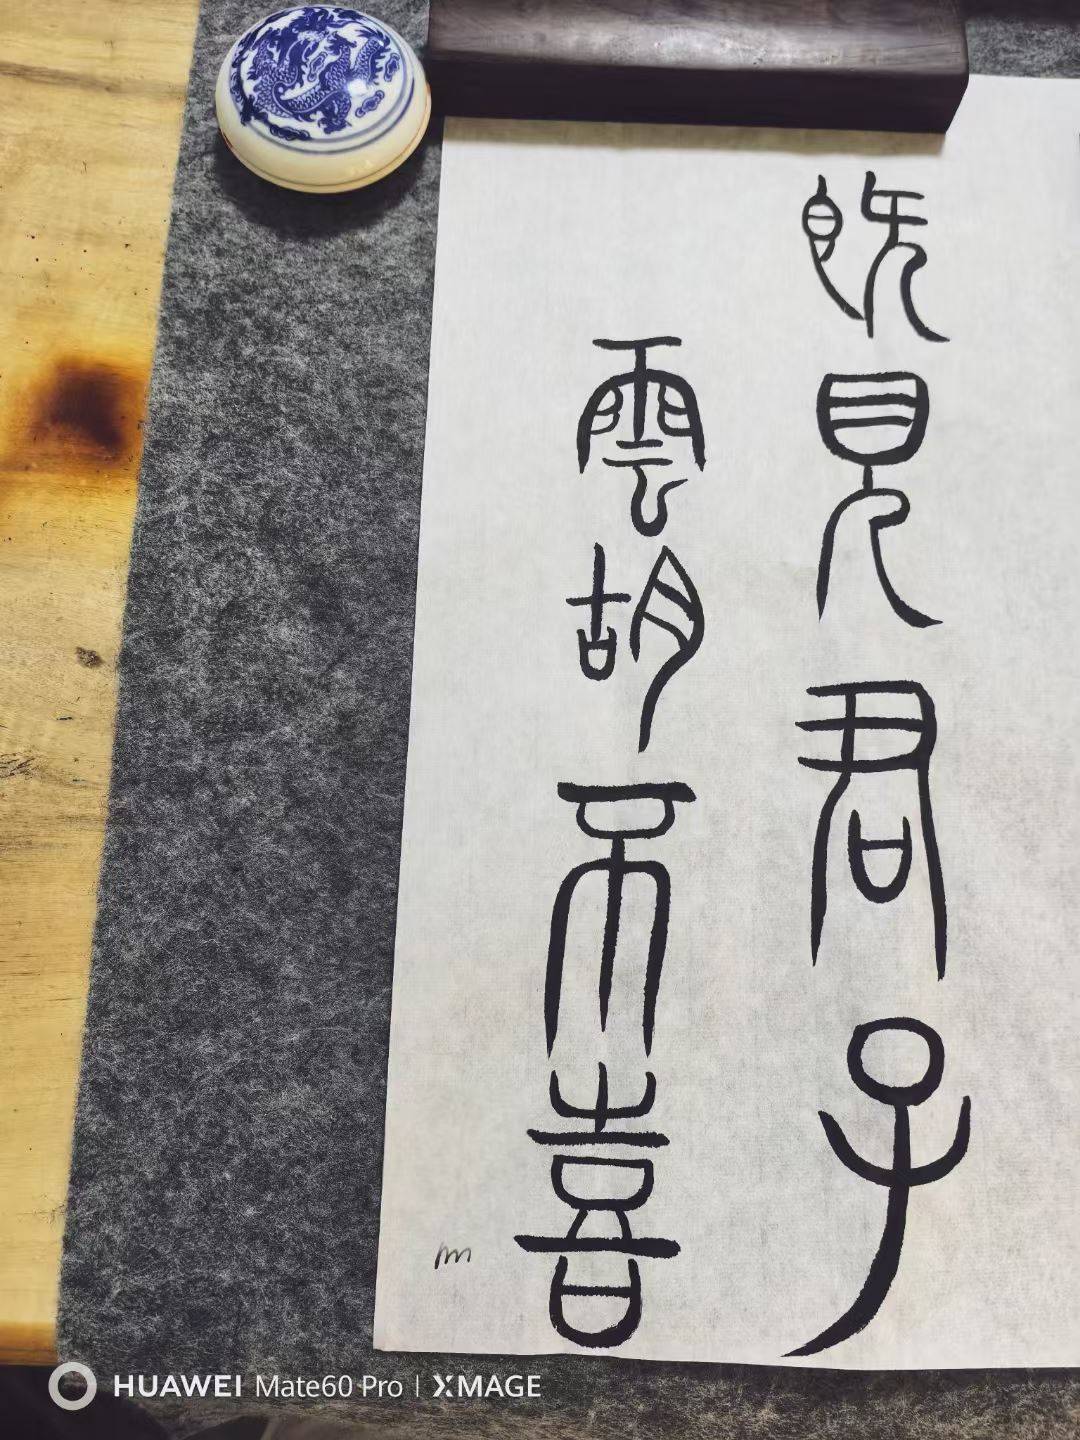 既見君子
雲胡不喜
HUAWEI Mate60 Pro | XMAGE